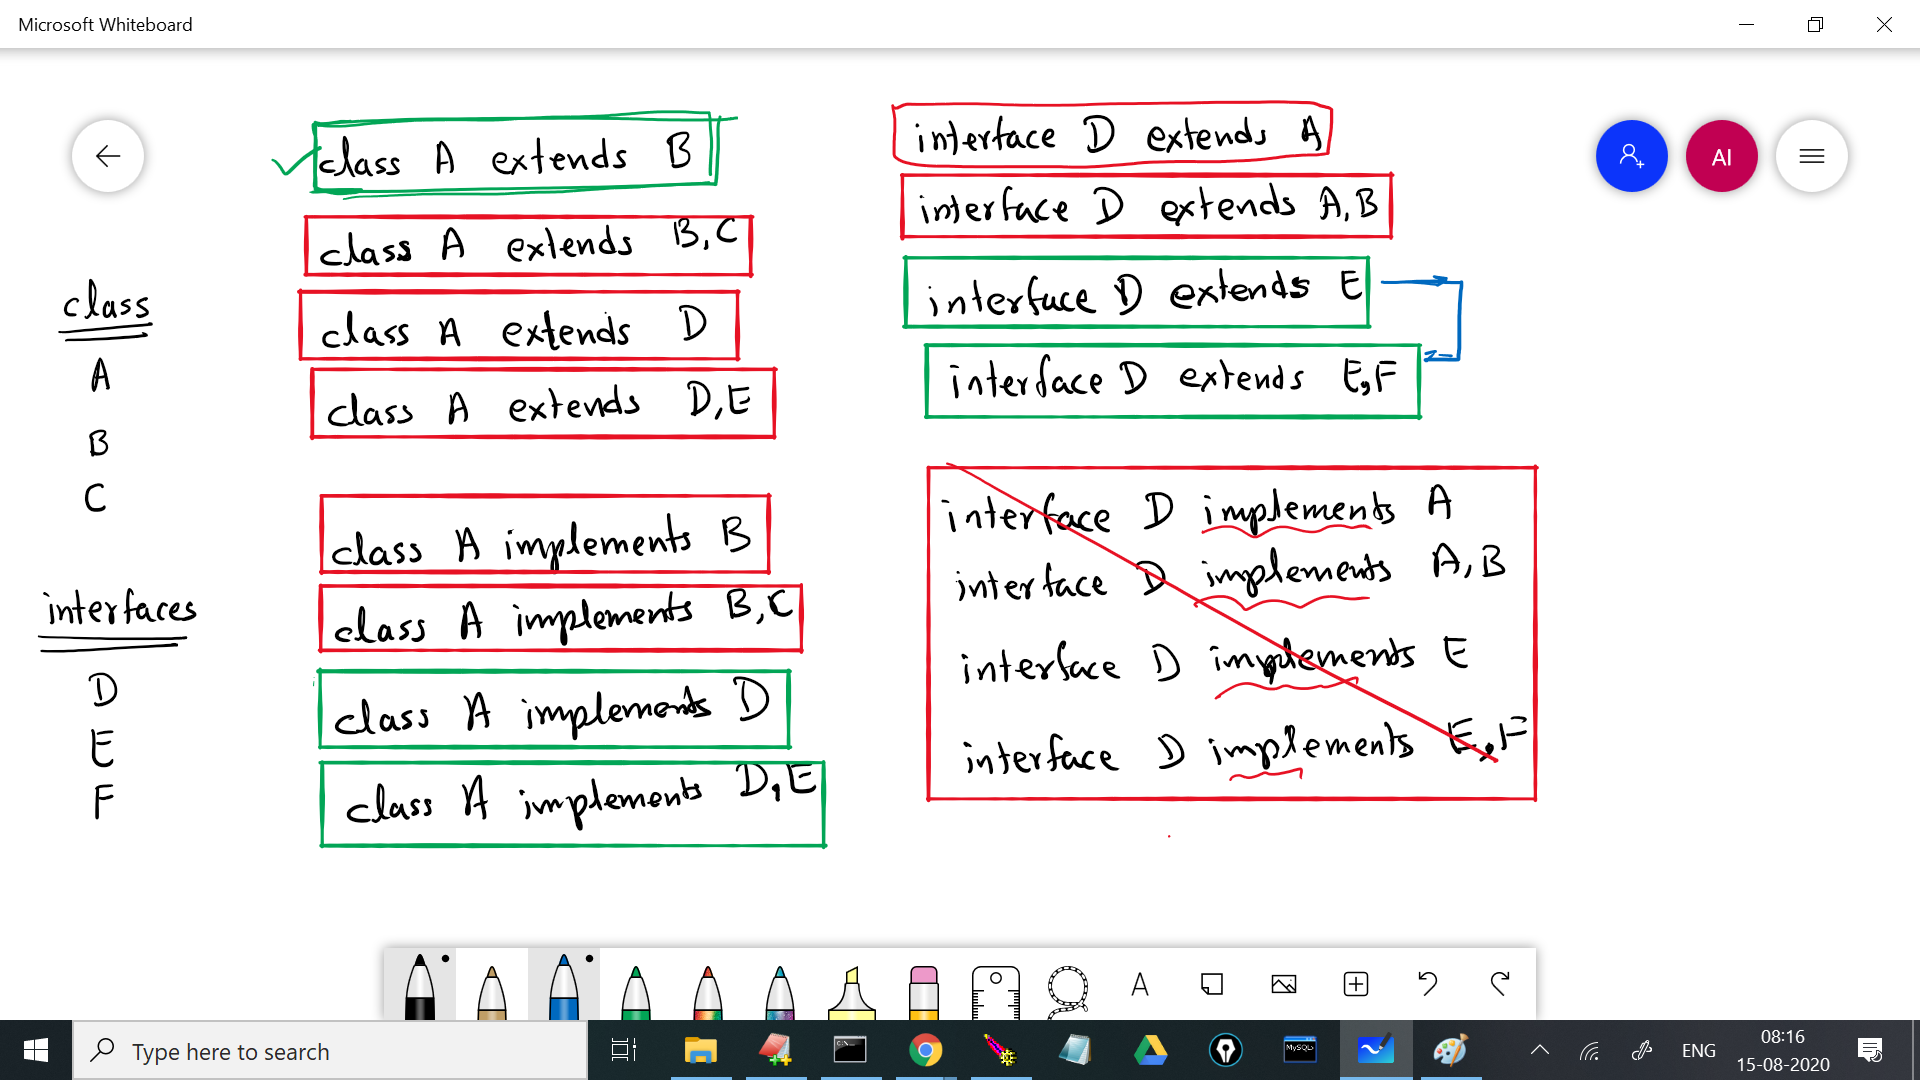 Microsoft Whiteboard
class A extends B
class A extends B,C
class A extends D
class A extends D,E
class
A
B
C
interfaces
D
E
F
class A implements B
class A implements B,C
class A implements D
class A implements D,E
interface D extends A
interface D extends A,B
interface D extends E
interface D extends E,F
interface D implements A
interface D implements A,B
interface D implements E
interface D implements E,F
AI
A
Type here to search
C:\
MySQL
ENG
08:16
15-08-2020